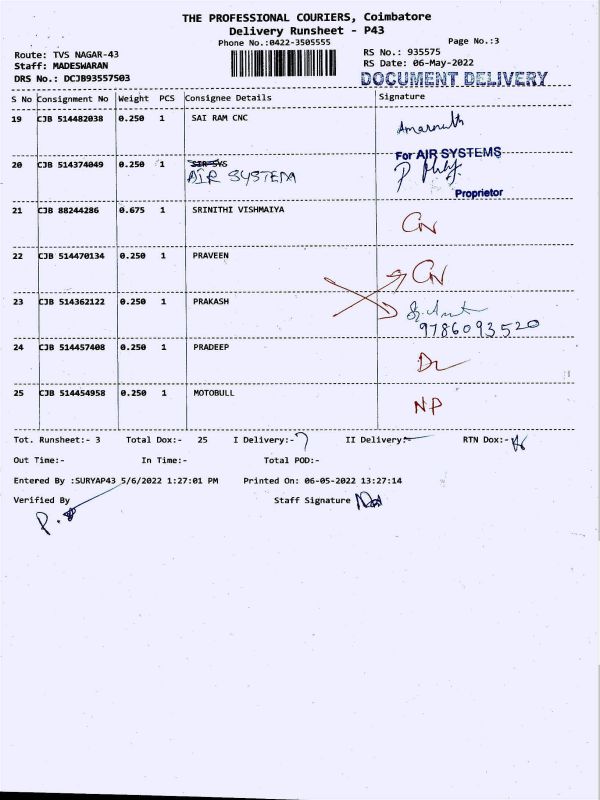 THE PROFESSIONAL COURIERS, Coimbatore
Delivery Runsheet - P43
Phone No.:0422-3505555
Page No.:3
Route: TVS NAGAR-43
RS No.: 935575
Staff: MADESWARAN
RS Date: 06-May-2022
DRS No.: DCJB93557503
DOCUMENT DELIVERY
S No Consignment No Weight PCS Consignee Details Signature
19 CJB 514482038 0.250 1 SAI RAM CNC
Amarnath
For AIR SYSTEMS
20 CJB 514374049 0.250 1 SIR SYS
AIR SYSTEM
Proprietor
21 CJB 88244286 0.675 1 SRINITHI VISHMAIYA
CN
22 CJB 514470134 0.250 1 PRAVEEN
CN
23 CJB 514362122 0.250 1 PRAKASH
9786093520
24 CJB 514457408 0.250 1 PRADEEP
DL
25 CJB 514454958 0.250 1 MOTOBULL
NP
Tot. Runsheet:- 3 Total Dox:- 25 I Delivery:- II Delivery:- RTN Dox:-
Out Time:- In Time:- Total POD:-
Entered By :SURYAP43 5/6/2022 1:27:01 PM Printed On: 06-05-2022 13:27:14
Verified By Staff Signature